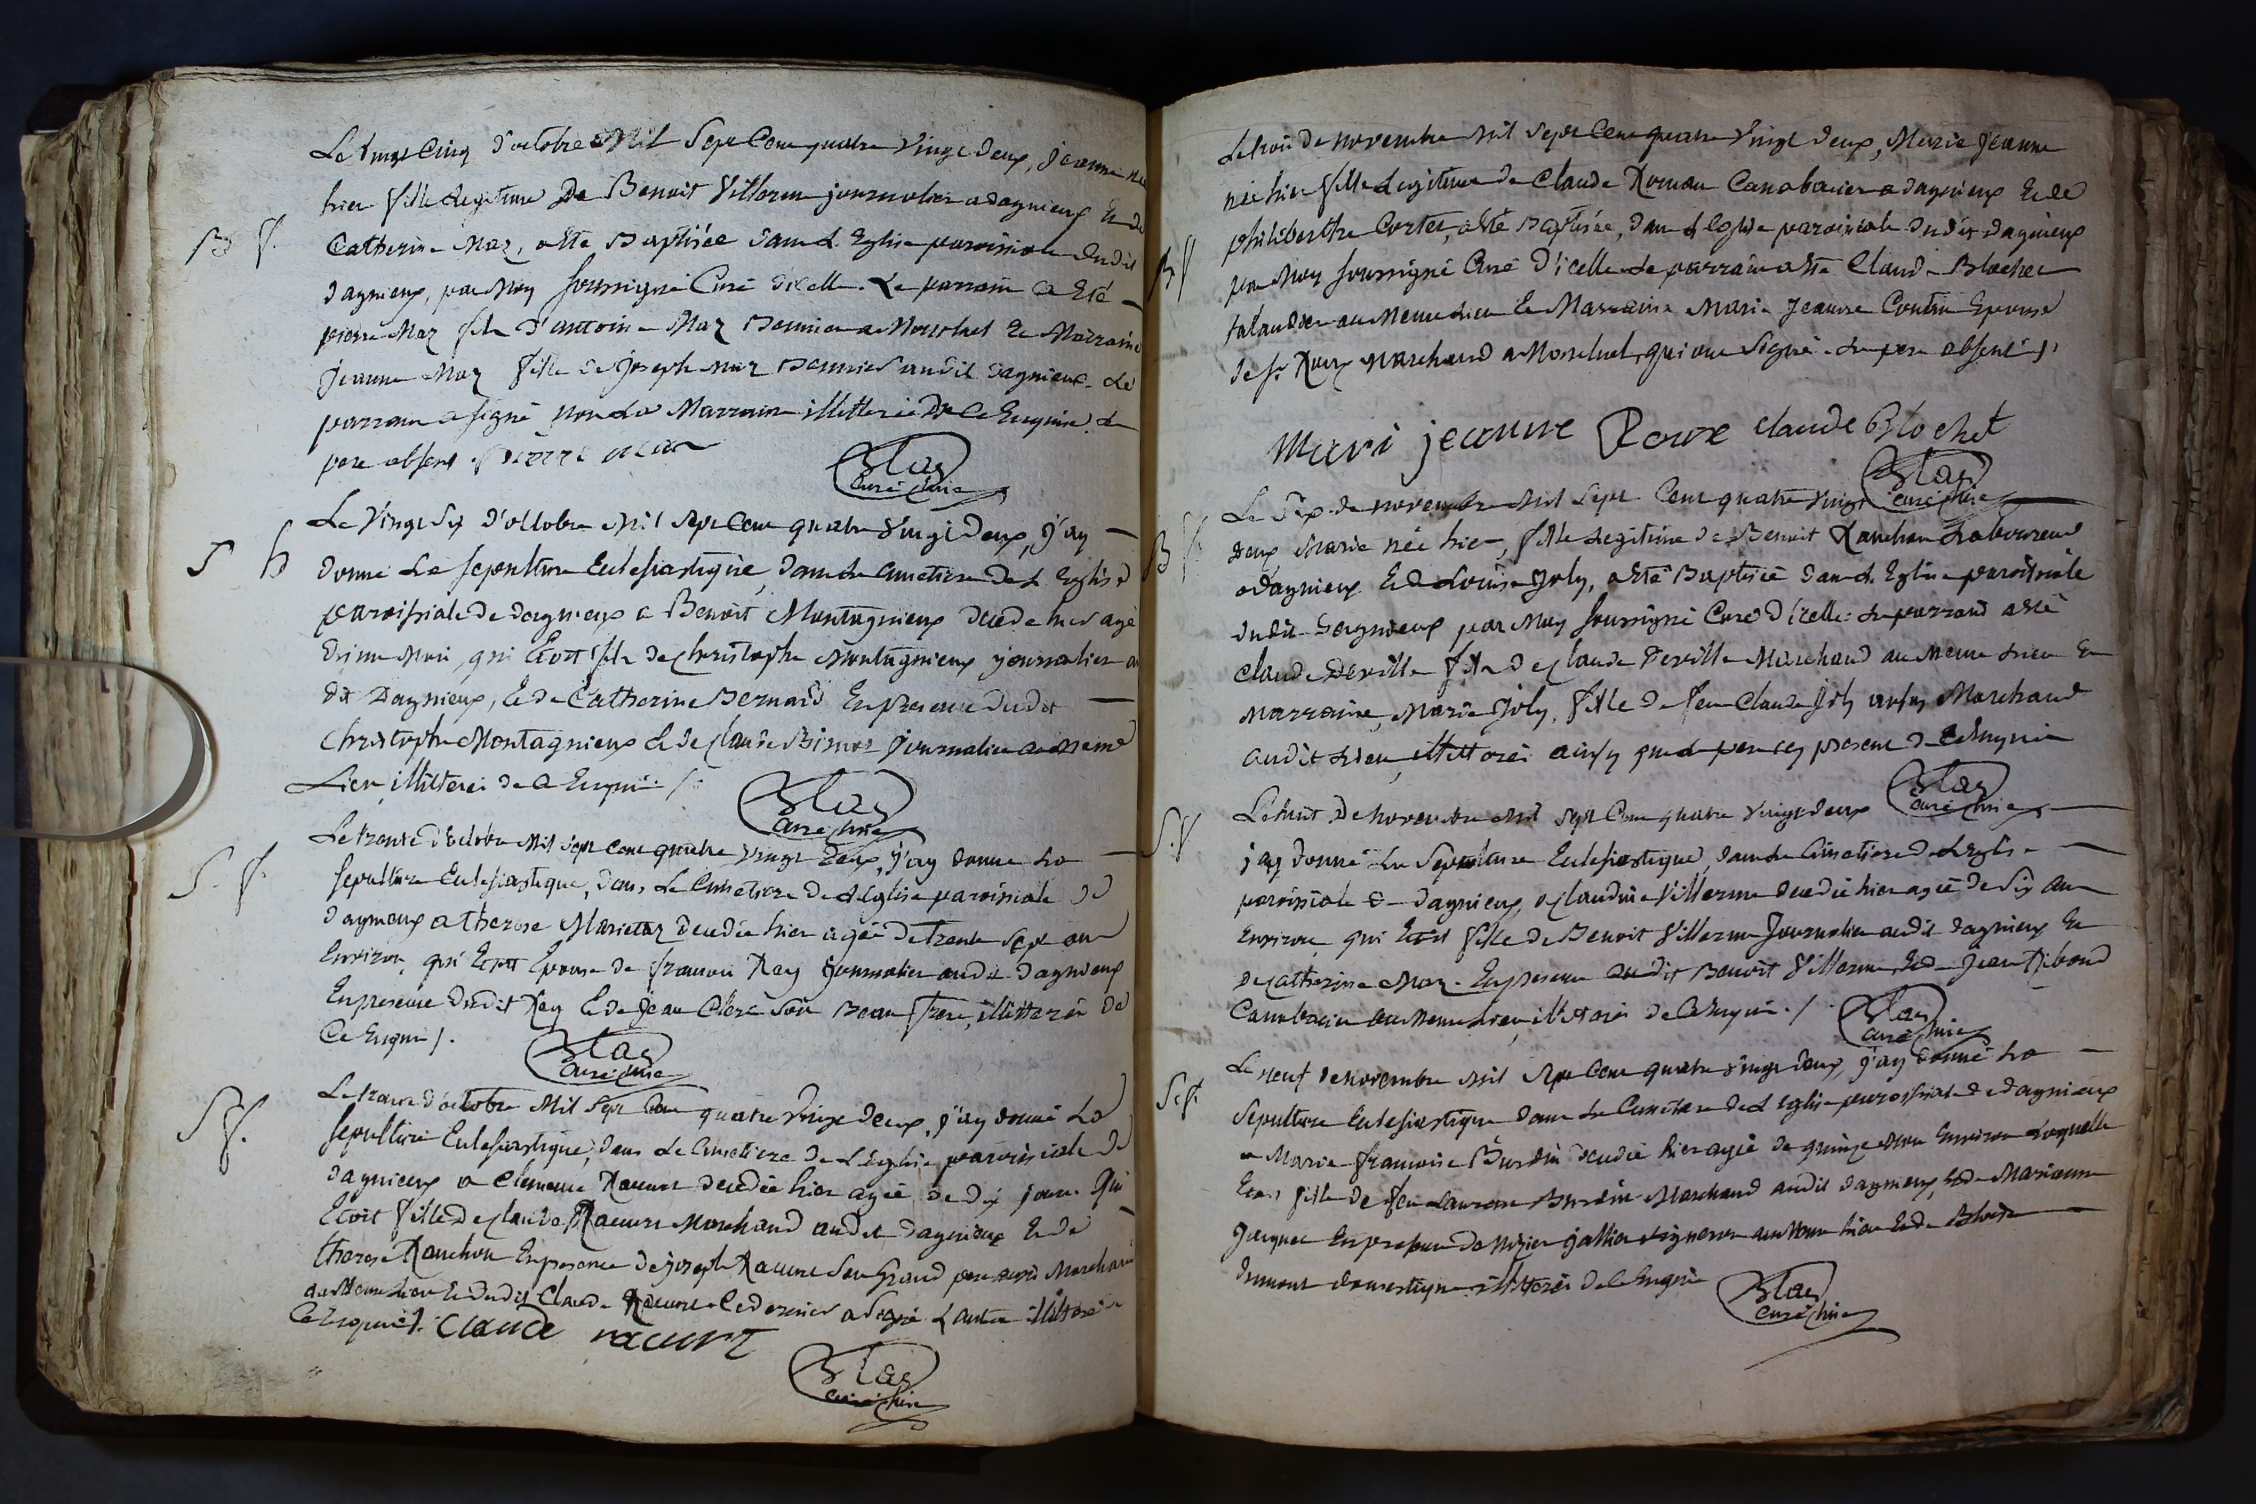 Le vingt Cinq d'octobre Mil Sept Cent quatre vingt deux, jeanne née
hier fille legitime De Benoit Villerme journalier a dagnieux Et de
B f.
Catherine Maz, a Eté Baptisée dans L'Eglise paroissiale dudit
dagnieux, par Moy soussigné Curé d'icelle. Le parrain a Eté
pierre Maz fils d'antoine Maz a Monluel Et Marraine
jeanne Maz fille de joseph Maz audit dagnieux. Le
parrain a signé non La Marraine illitterée De Ce Enquise Le
pere absent. pierre maz
Blas
curé
Le vingt Six d'octobre Mil Sept Cent quatre vingt deux, j'ay
S h
donné La sepulture Eclesiastique, dans Le Cimetiere de L'Eglise
paroissiale de dagnieux a Benoit Montagnieux decedé hier agé
d'un Moi, qui Etoit fils de Christophe Montagnieux journalier au
dit Dagnieux, Et De Catherine Bernard En presence dudit
Christophe Montagnieux Et de Claude journalier au meme
Lieu illitterés de Ce Enquis ./.
Blas
Curé
Le trente d'octobre Mil Sept Cent quatre vingt deux, j'ay donné La
S. f.
sepulture Eclesiastique, dans Le Cimetiere de L'Eglise paroissiale de
dagnieux a therese decedée hier agée de trente sept ans
Environ, qui Etoit Epouse de francois Ray journalier audit dagnieux
En presence dudit Ray Et de jean Clerc son Beau frere, illitterés de
Ce Enquis ./.
Blas
Curé
Le trente d'octobre Mil Sept Cent quatre vingt deux, j'ay donné La
S f.
sepulture Eclesiastique, dans Le Cimetiere de L'eglise paroissiale de
dagnieux a Clemence Racurt decedée hier agée de dix jours. Qui
Etoit fille de Claude Racurt Marchand audit dagnieux Et de
therese Ranchon En presence de joseph Racurt son grand pere aussi Marchand
au Meme Lieu Et dudit Claude Racurt Ce dernier a signé L'autre illitteré de
Ce Enquis ./. Claude racurt
Blas
curé
Le troi de novembre Mil Sept Cent quatre vingt deux, Marie jeanne
née hier fille Legitime de Claude Roman Canabacier a dagnieux Et de
philiberthe Cortet, a Eté Baptisée, dans L'Eglise paroissiale dudit dagnieux
B f
par Moy soussigné Curé d'icelle Le parrain a Eté Claude Blochet
talandier au Meme Lieu Et Marraine Marie jeanne Epouse
de sr Roux Marchand a Monluel, qui ont signé. Le pere absent ./.
mari jeanne Roux claude Blochet
Blas
curé
Le Six de novembre Mil Sept Cent quatre vingt
B f.
deux Marie née hier, fille Legitime de Benoit Ranchon Laboureur
a dagnieux Et de Louise joly, a Eté Baptisée dans L'Eglise paroissiale
dudit dagnieux par Moy soussigné Curé d'icelle. Le parrain a Eté
Claude Deville fils de Claude Deville Marchand au Meme Lieu Et
Marraine, Marie joly, fille de feu Claude joly aussy Marchand
audit Lieu, illitterés ainsy que Le pere icy present de Ce Enquis
Blas
curé
Le huit De novembre Mil Sept Cent quatre vingt deux
S. f
j'ay donné La Sepulture Eclesiastique, dans Le Cimetiere de L'Eglise
paroissiale de dagnieux, a Claudine Villerme decedée hier agée de six ans
Environ, qui Etoit fille de Benoit Villerme journalier audit dagnieux Et
de Catherine Maz. En presence dudit Benoit Villerme, Et de jean Ribaud
Canabacier au Meme Lieu, illitterés de Ce Enquis ./.
Blas
curé
Le neuf de novembre Mil Sept Cent quatre vingt deux, j'ay donné La
S. f.
Sepulture Eclesiastique dans Le Cimetiere de L'Eglise paroissiale de dagnieux
a Marie francoise Burdin decedée hier agée de quinze Environ Laquelle
Etoit fille de feu Laurent Burdin Marchand audit dagnieux, Et de Marianne
jacquet En presence de Nizier vigneron au Meme Lieu Et de
dumont domestique illitterés de Ce Enquis
Blas
curé